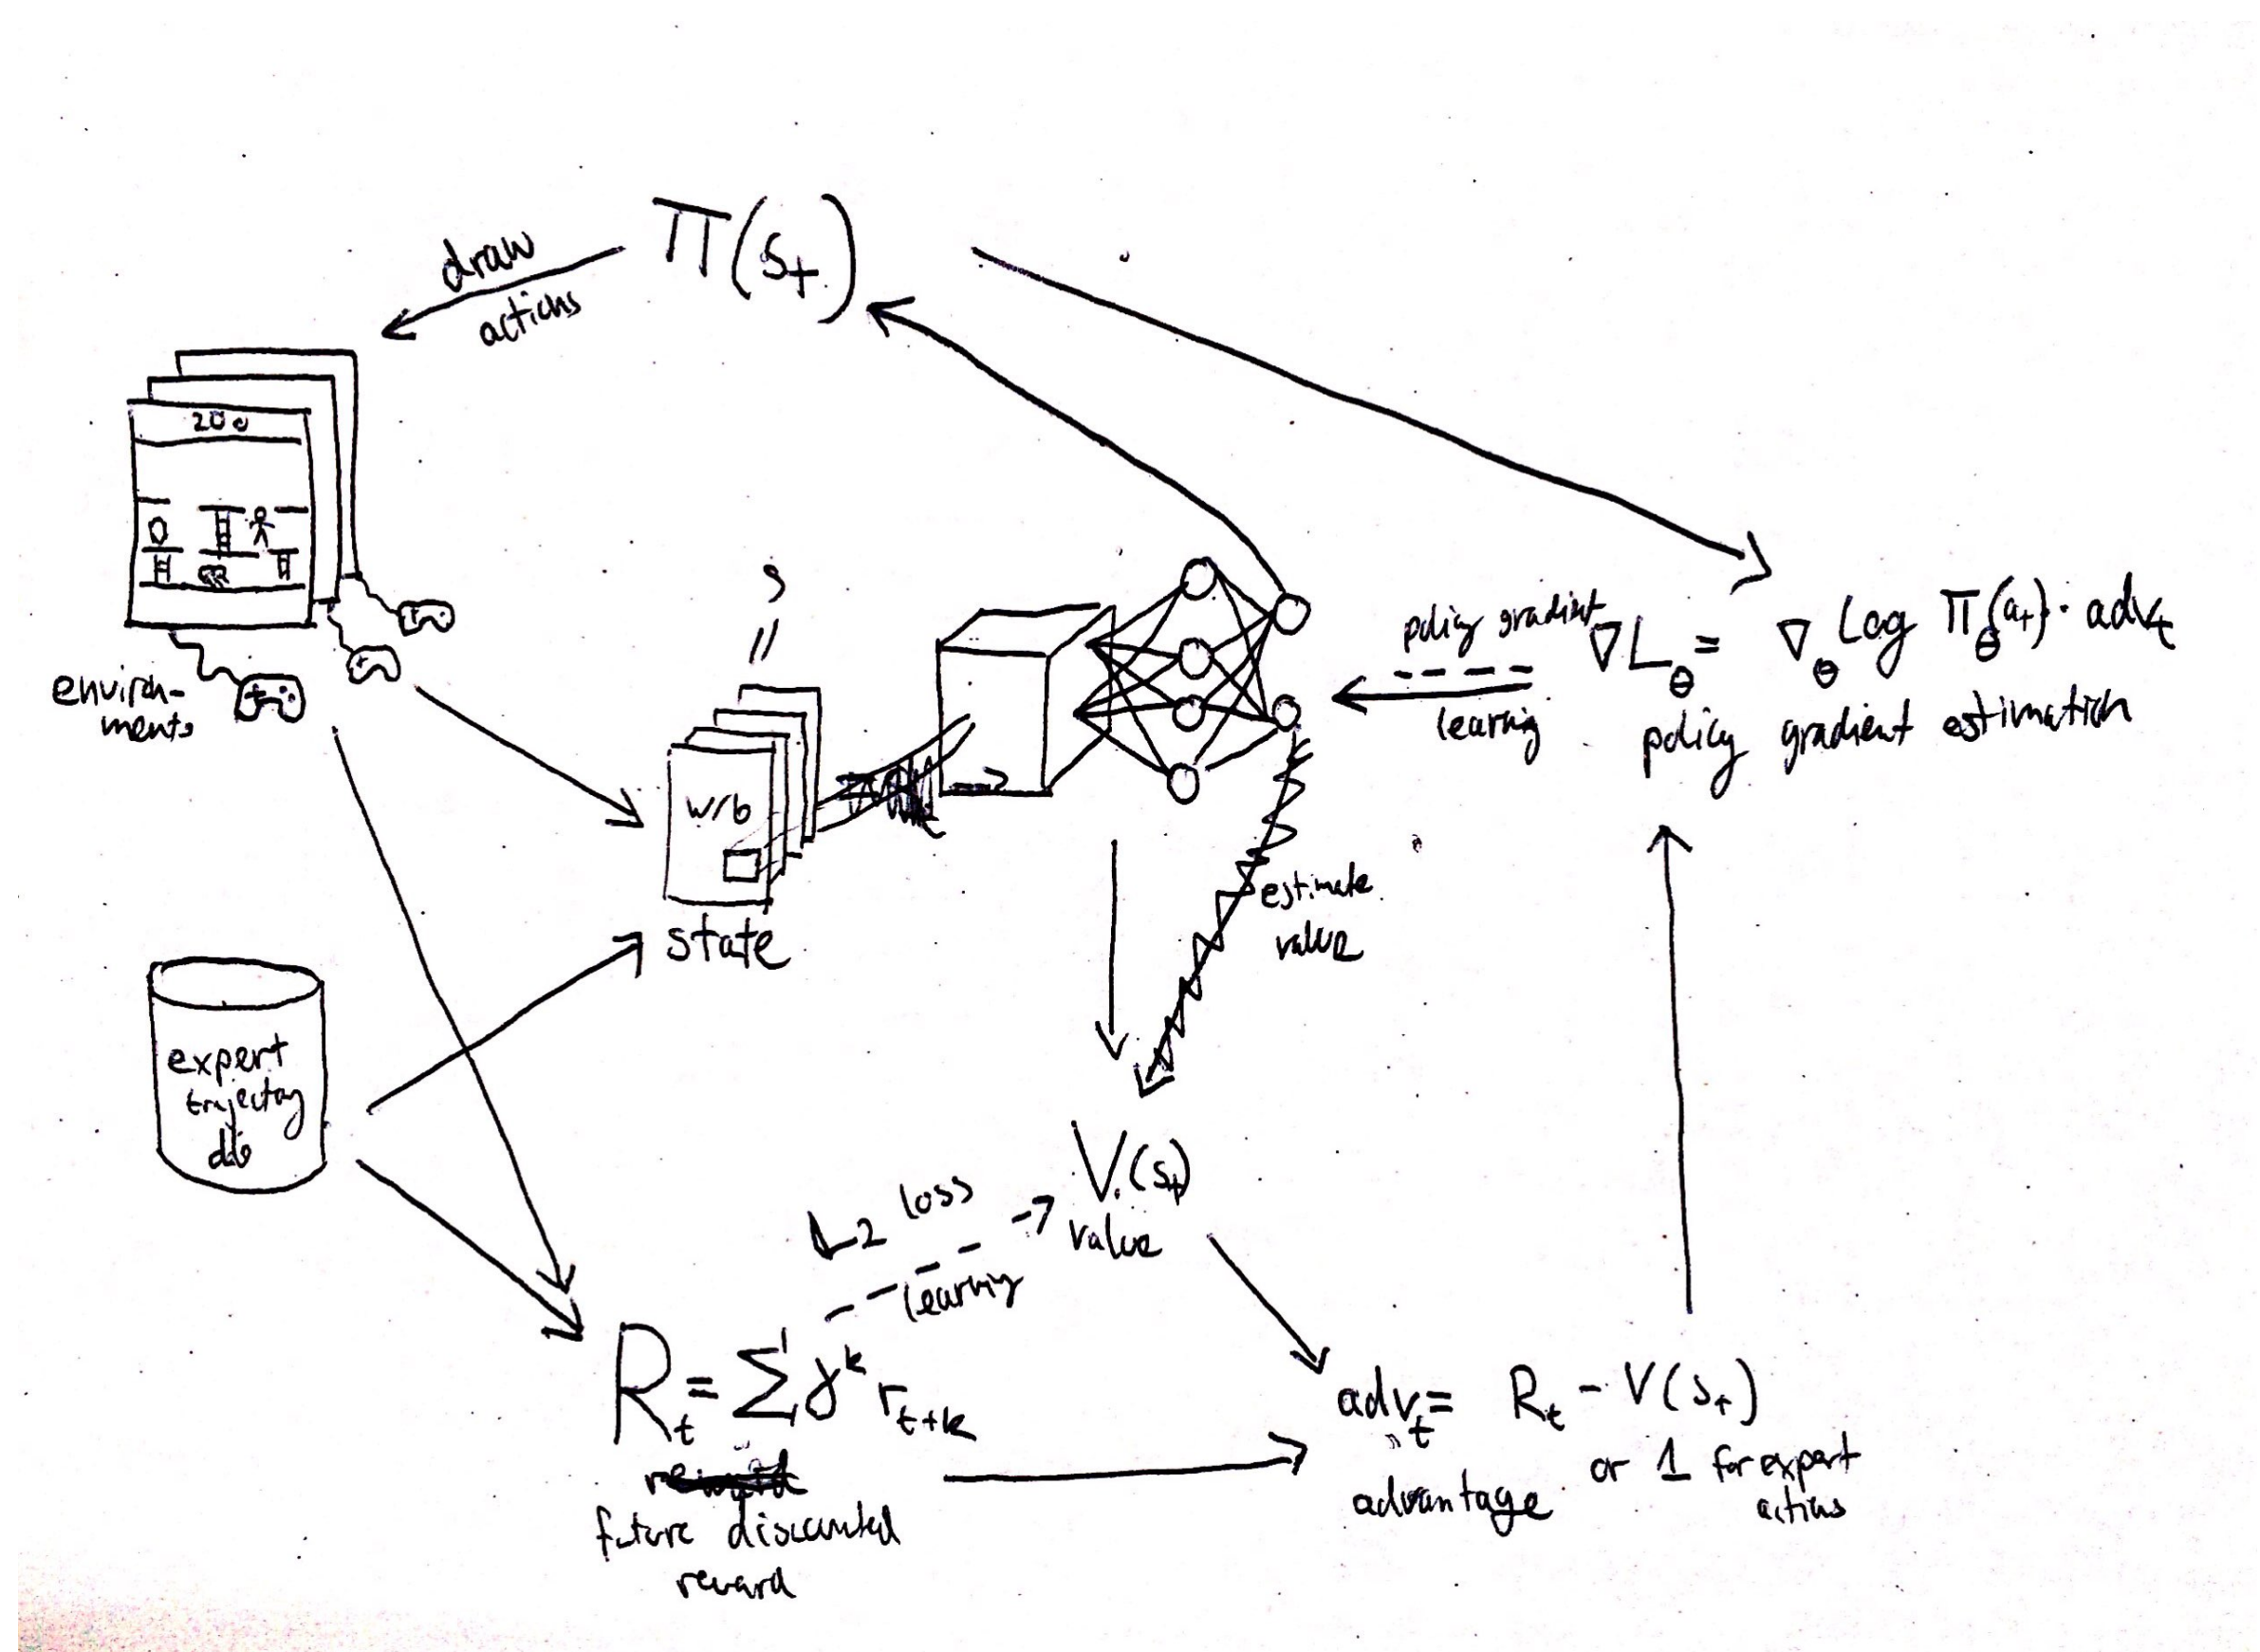 π(sₜ)
draw
actions
200
environ-
ments
s
||
w/b
state
policy gradient
learning
∇L_θ = ∇_θ log π_θ(aₜ) · advₜ
policy gradient estimation
estimate
value
expert
trajectory
db
V(sₜ)
value
L2 loss
learning
Rₜ = Σ γᵏ rₜ₊ₖ
future discounted
reward
advₜ = Rₜ - V(sₜ)
or 1 for expert
actions
advantage